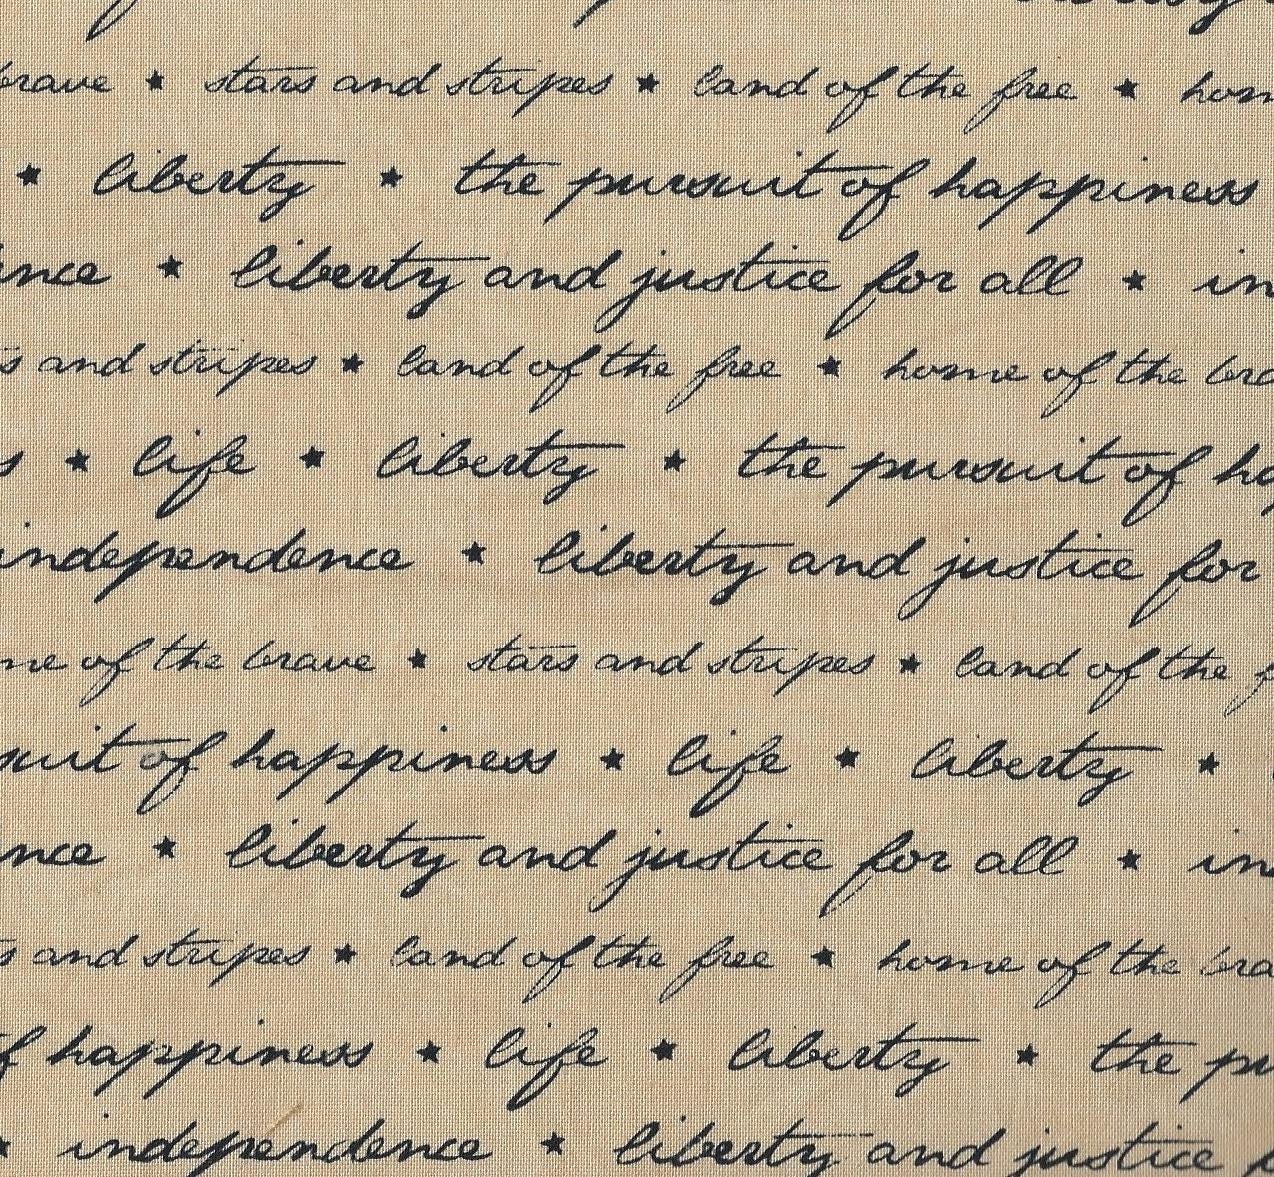 brave ★ stars and stripes ★ land of the free ★ hom
★ liberty ★ the pursuit of happiness
ence ★ liberty and justice for all ★ in
s and stripes ★ land of the free ★ home of the bra
s ★ life ★ liberty ★ the pursuit of ha
independence ★ liberty and justice for
me of the brave ★ stars and stripes ★ land of the f
suit of happiness ★ life ★ liberty ★
nce ★ liberty and justice for all ★ in
s and stripes ★ land of the free ★ home of the bra
f happiness ★ life ★ liberty ★ the pu
★ independence ★ liberty and justice f